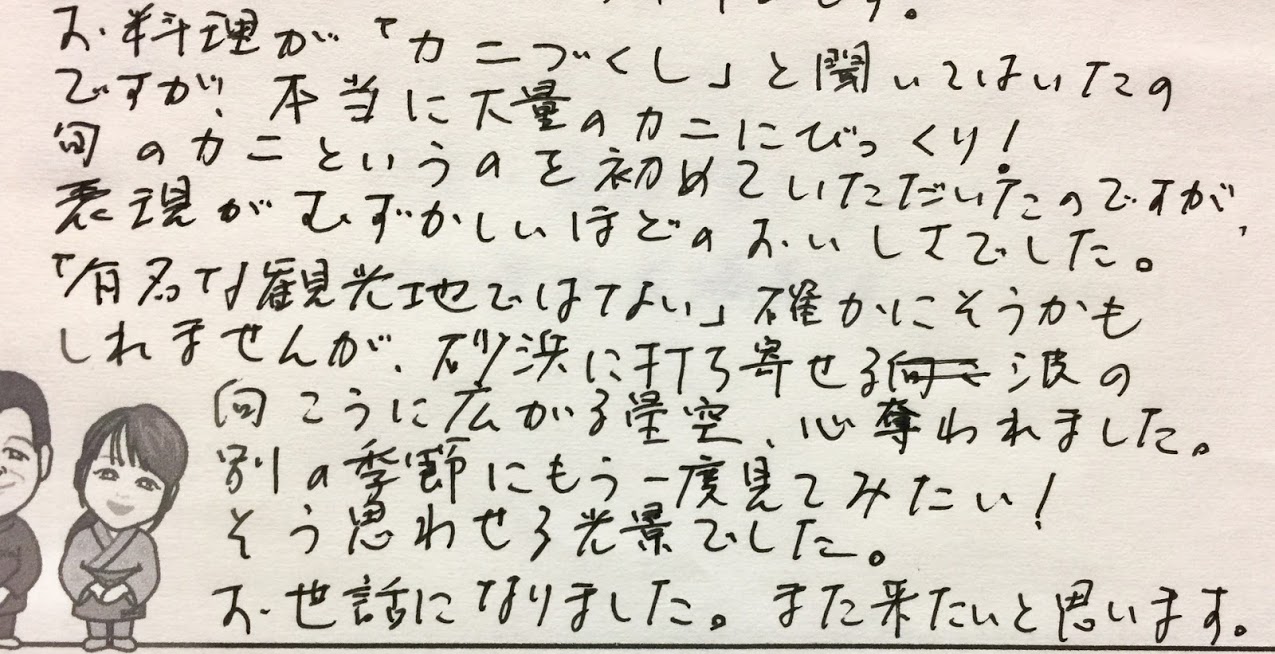 です。
お料理が「カニづくし」と聞いてはいたの
ですが、本当に大量のカニにびっくり!
旬のカニというのを初めていただいたのですが、
表現がむずかしいほどのおいしさでした。
「有名な観光地ではない」確かにそうかも
しれませんが、砂浜に打ち寄せる波の
向こうに広がる星空、心奪われました。
別の季節にもう一度見てみたい!
そう思わせる光景でした。
お世話になりました。また来たいと思います。